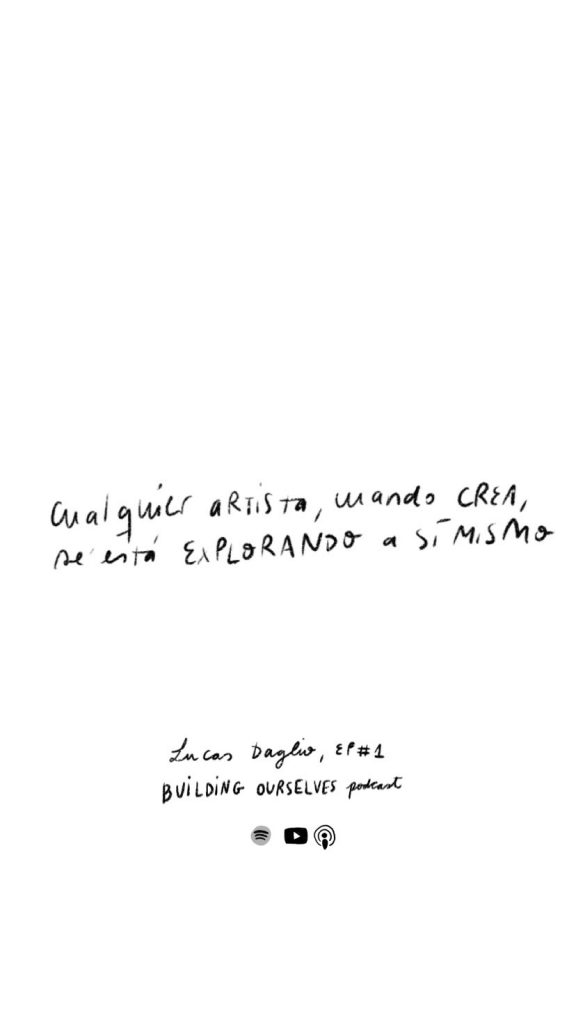 Cualquier ARTiSTA, cuando CREA,
se está EXPLORANDO a SÍ MiSMO
Lucas Daglio, EP#1
BUiLDiNG OURSELVES podcast